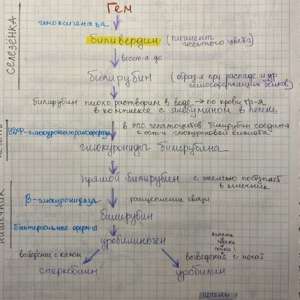 Гем
гемоксигеназа
Биливердин (пигмент желтого цвета)
восст-я до
Билирубин (образ-я при распаде и др. гемосодержащих белков)
Билирубин плохо растворим в воде → по крови тр-я
в комплексе с альбумином в печень
УДФ-глюкуронилтрансфераза
в ЭПС гепатоцитов билирубин соедин-я
с ост-м глюкуроновой кислоты
глюкурониды билирубина
прямой билирубин с желчью поступает
в кишечник
β-глюкуронидаза расщепление связи
билирубин
бактериальные ферм-ты
уробилиноген
выведение с калом
выведение с мочой
стеркобилин
уробилин
СЕЛЕЗЁНКА
КИШЕЧНИК